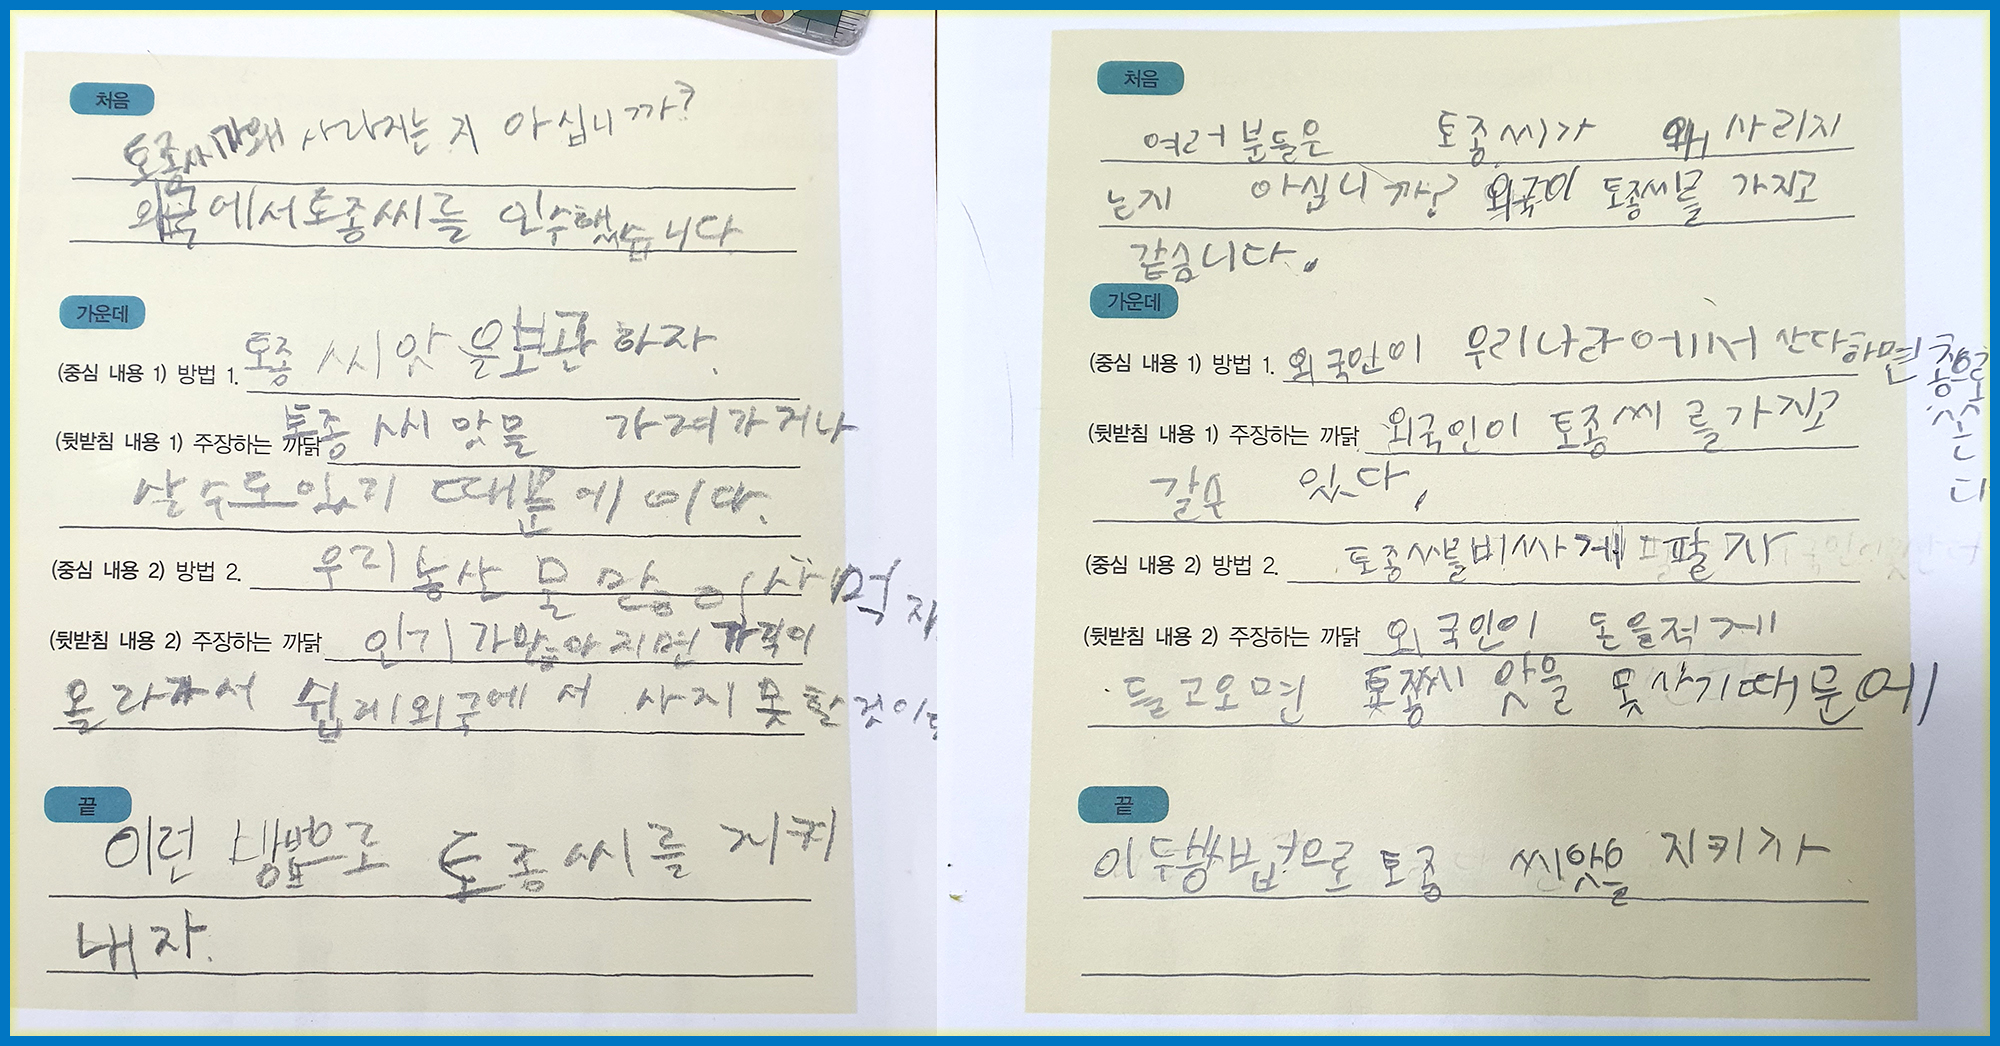 처음
토종씨가왜 사라지는 지 아십니까?
외국에서토종씨를 인수했습니다
가운데
(중심 내용 1) 방법 1. 토종 씨앗 을보관 하자.
(뒷받침 내용 1) 주장하는 까닭 토종 씨앗을 가져가거나
살수도있기 때문에이다.
(중심 내용 2) 방법 2. 우리 농산 물 많이 사먹자.
(뒷받침 내용 2) 주장하는 까닭 인기가많아지면 가격이
올라가서 쉽게외국에서 사지 못할것이다
끝
이런 방법으로 토종씨를 지키
내자.
처음
여러분들은 토종씨가 왜 사리지
는지 아십니까? 외국이 토종씨를 가지고
같습니다.
가운데
(중심 내용 1) 방법 1. 외국인이 우리나라에서 산다하면
(뒷받침 내용 1) 주장하는 까닭 외국인이 토종씨를가지고
갈수 있다.
(중심 내용 2) 방법 2. 토종씨를비싸게 팔자
(뒷받침 내용 2) 주장하는 까닭 외국인이 돈을적게
들고오면 토종씨앗을 못사기때문에
끝
이 두 방법으로 토종 씨앗을 지키자